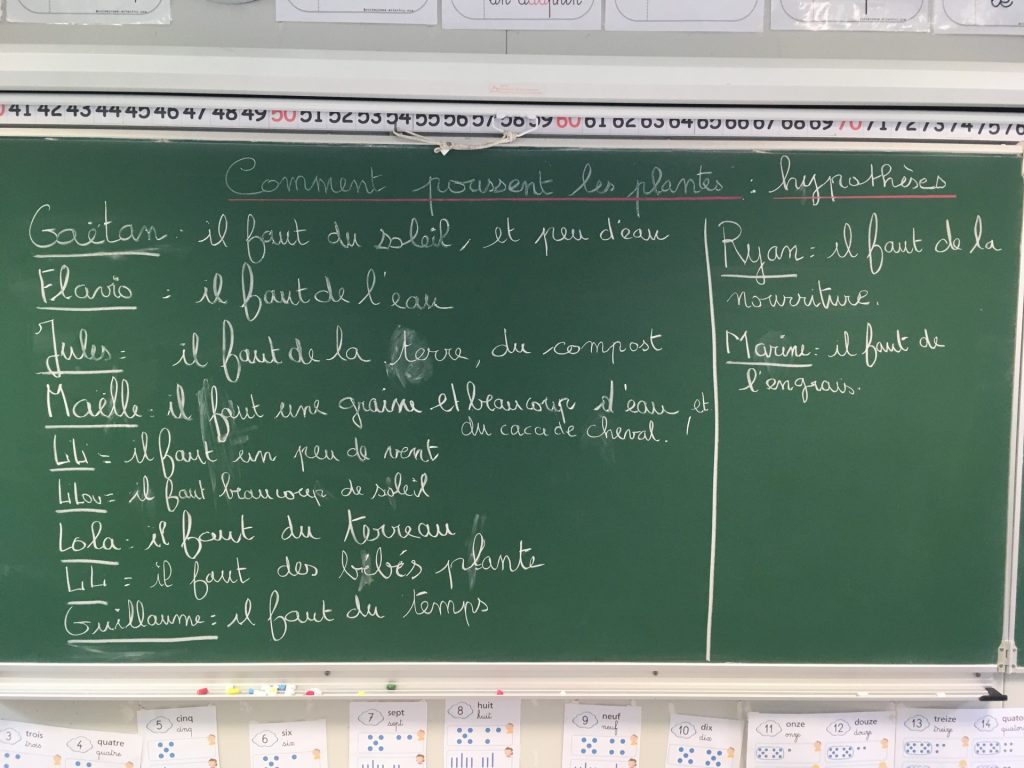 41 42 43 44 45 46 47 48 49 50 51 52 53 54 55 56 57 58 59 60 61 62 63 64 65 66 67 68 69 70 71 72 73 74 75 76
Comment poussent les plantes : hypothèses
Gaëtan : il faut du soleil, et peu d'eau
Flavio : il faut de l'eau
Jules : il faut de la terre, du compost
Maëlle : il faut une graine et beaucoup d'eau et
du caca de cheval.
Lili : il faut un peu de vent
Lilou : il faut beaucoup de soleil
Lola : il faut du terreau
Lili : il faut des bébés plante
Guillaume : il faut du temps
Ryan : il faut de la
nourriture.
Marine : il faut de
l'engrais.
3 trois
trois
4 quatre
quatre
5 cinq
cinq
6 six
six
7 sept
sept
8 huit
huit
9 neuf
neuf
10 dix
dix
11 onze
onze
12 douze
douze
13 treize
treize
14